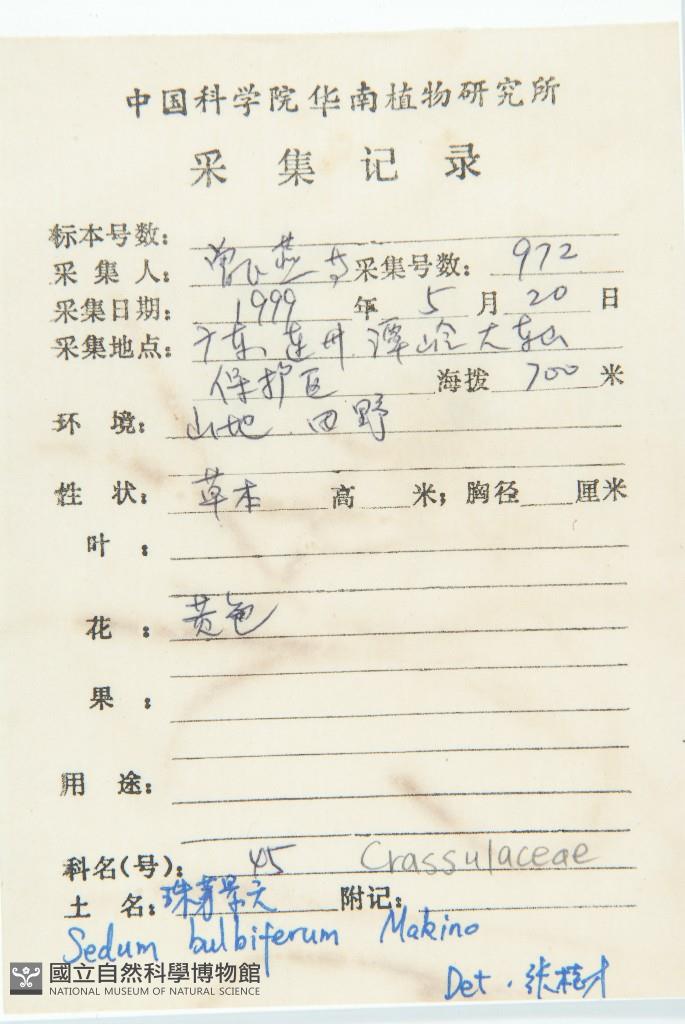 中国科学院华南植物研究所
采集记录
标本号数：
采集人：曾飞燕 采集号数：972
采集日期：1999年5月20日
采集地点：广东、连州 潭岭大东山
保护区 海拨 700 米
环境：山地、田野
性状：草本 高 米；胸径 厘米
叶：
花：黄色
果：
用途：
科名(号)：45 Crassulaceae
土名：珠芽景天 附记：
Sedum bulbiferum Makino
Det. 张
國立自然科學博物館
NATIONAL MUSEUM OF NATURAL SCIENCE